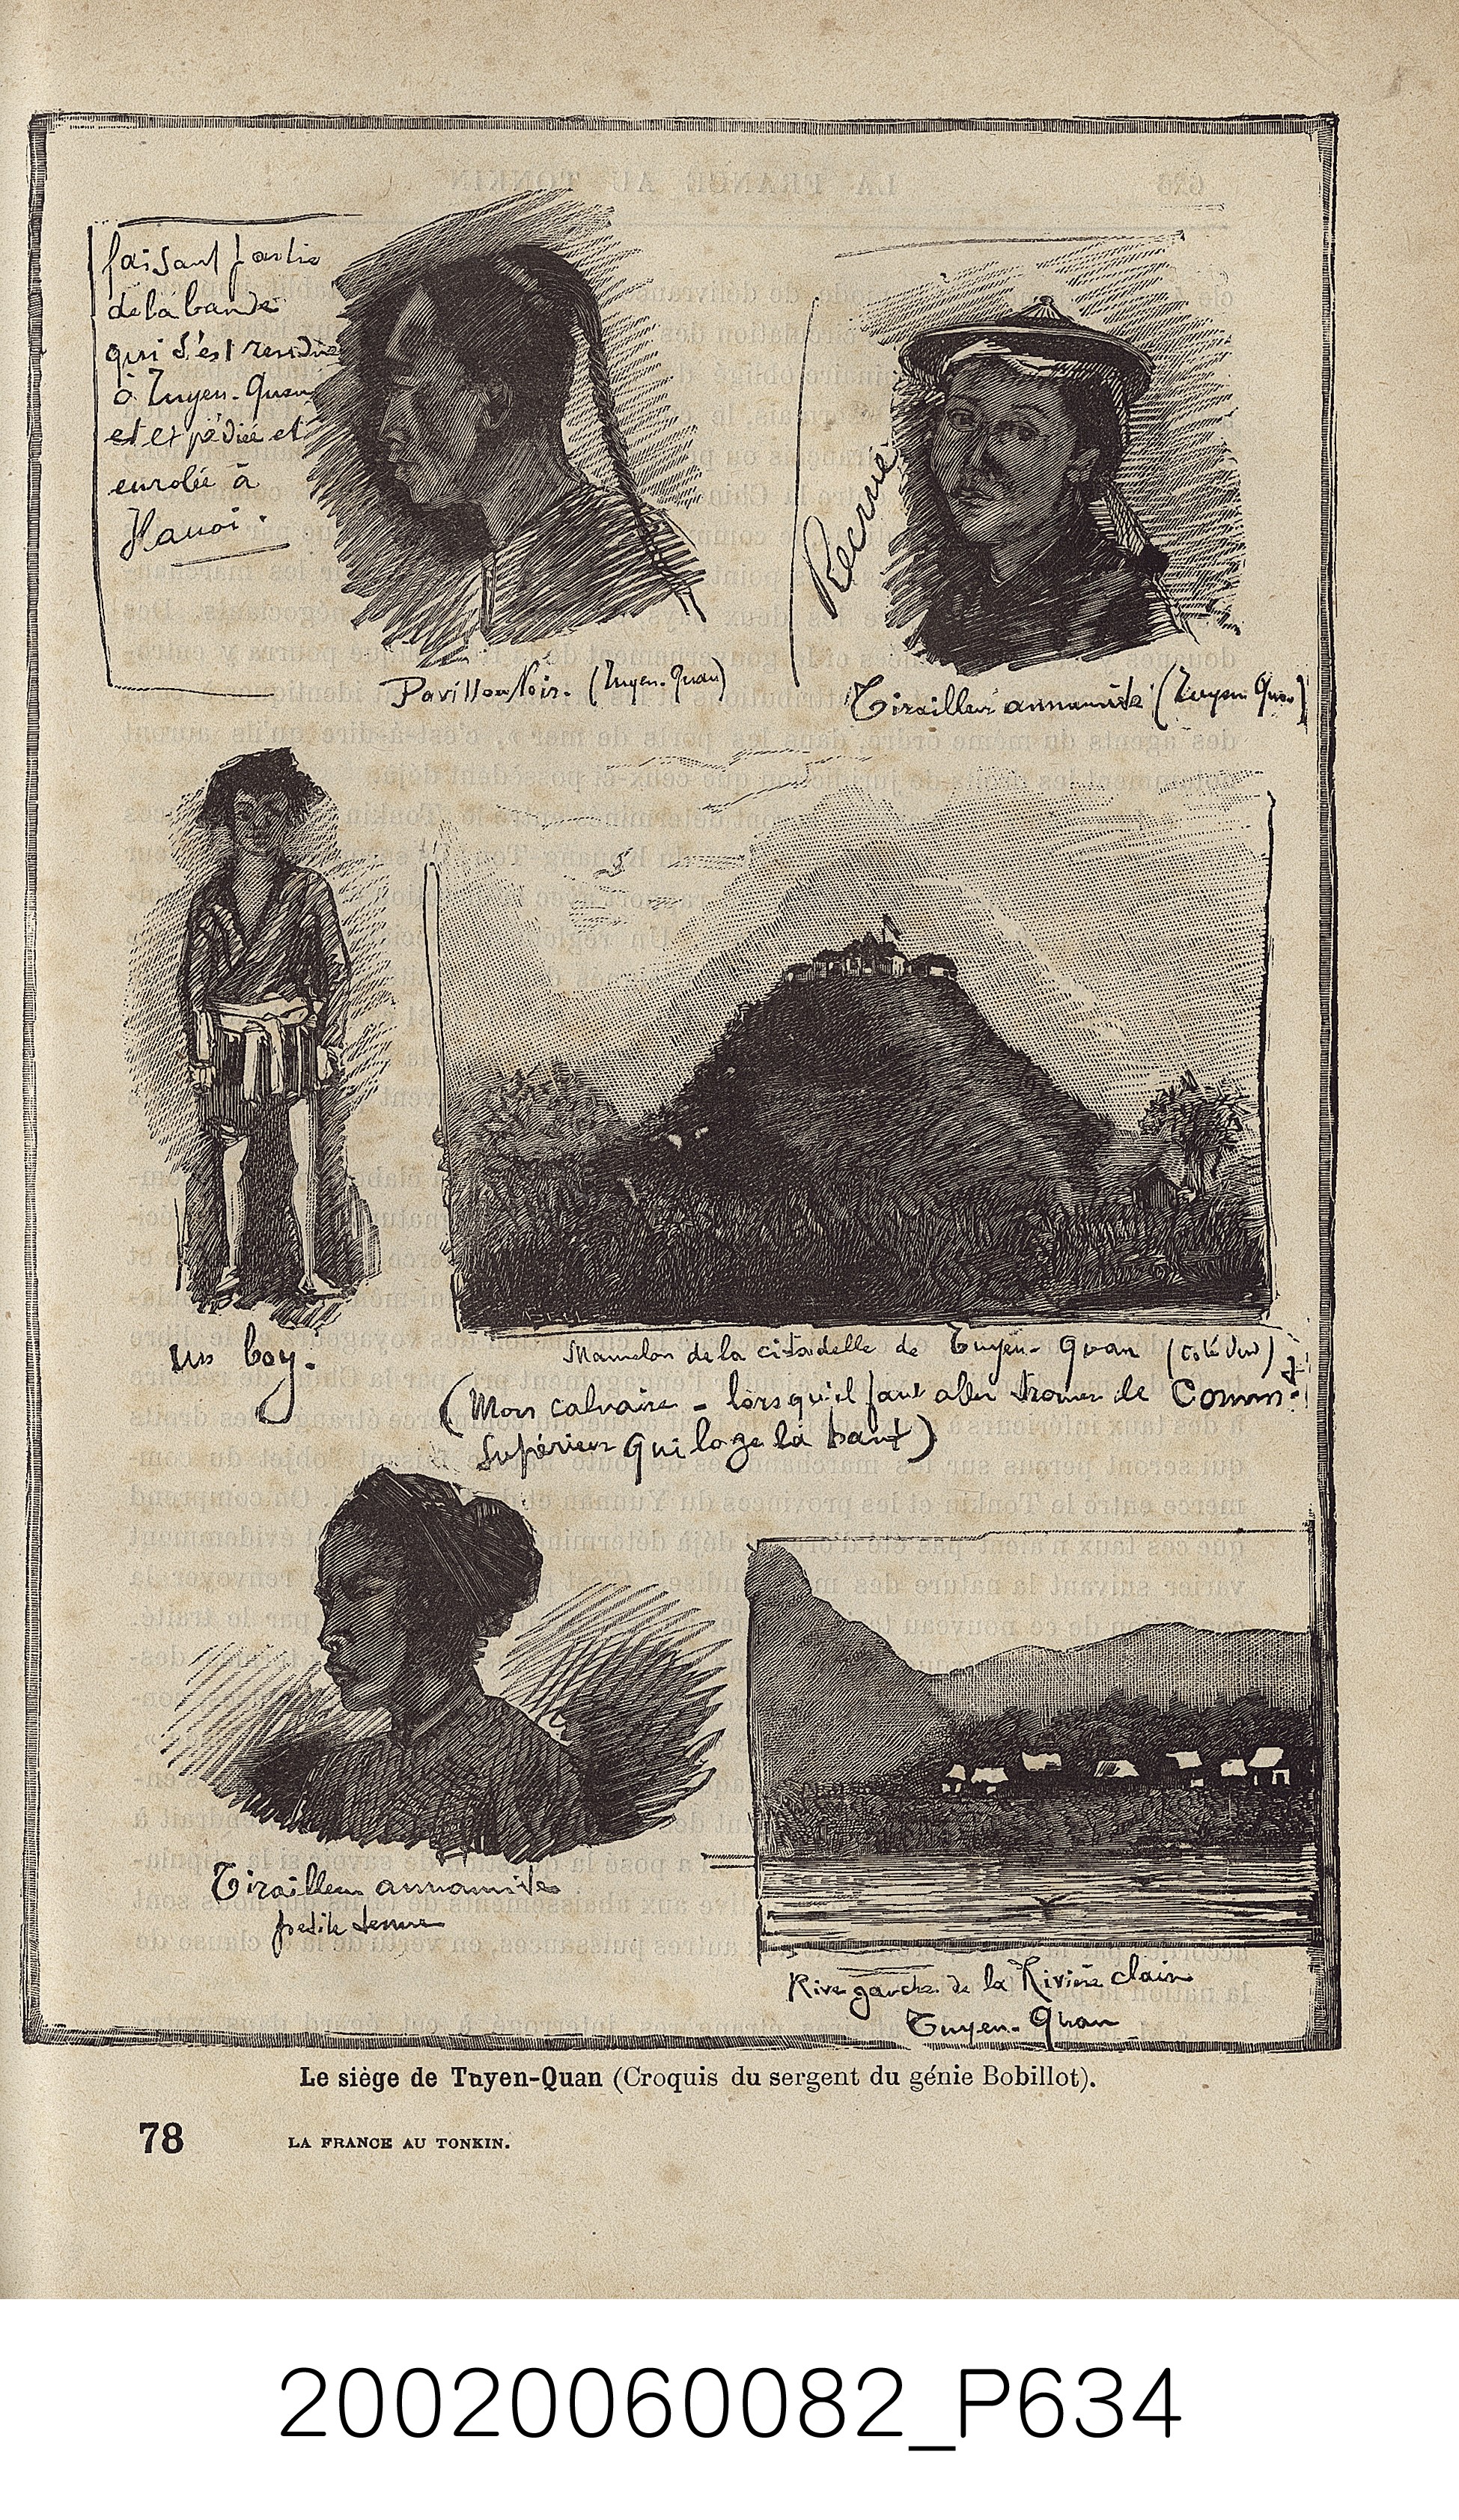 faisant partie
de la bande
qui s'est rendue
à Tuyen-Quan
et expédiée et
enrolée à
Hanoi.
Pavillon Noir. (Tuyen-Quan)
Recrue
Tirailleur annamite (Tuyen Quan)
un boy.
Mamelon de la citadelle de Tuyen-Quan (Coté
(Mon calvaire - lorsqu'il faut aller trouver le Comm.t
Supérieur qui loge là haut)
Tirailleur annamite
petite tenue
Rive gauche de la Rivière claire
Tuyen-Quan
Le siège de Tuyen-Quan (Croquis du sergent du génie Bobillot).
78 LA FRANCE AU TONKIN.
20020060082_P634